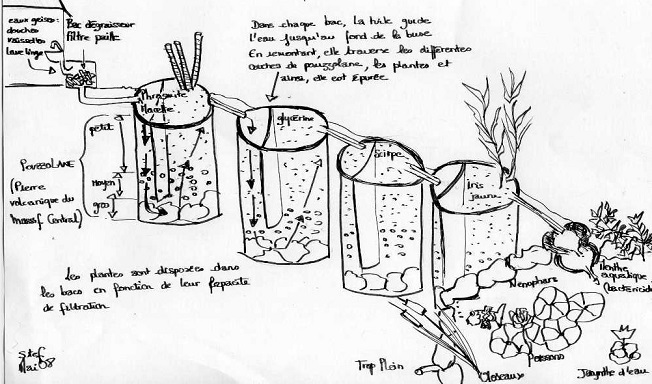 eaux grises:
douches
vaisselles
lave linge
Bac dégraisseur
filtre paille
Dans chaque bac, la tuile guide
l'eau jusqu'au fond de la buse
En remontant, elle traverse les différentes
couches de pouzzolane, les plantes et
ainsi, elle est épurée.
Phragmite
Massette
glycérine
Scirpe
Iris
jaune
petit
Moyen
gros
POUZZOLANE
(Pierre
volcanique du
Massif Central)
Les plantes sont disposées dans
les bacs en fonction de leur capacité
de filtration
Menthe
aquatique
(bactéricide
Nénuphars
Poissons
Trop Plein
Jacynthe d'eau
Stef
Mai 08